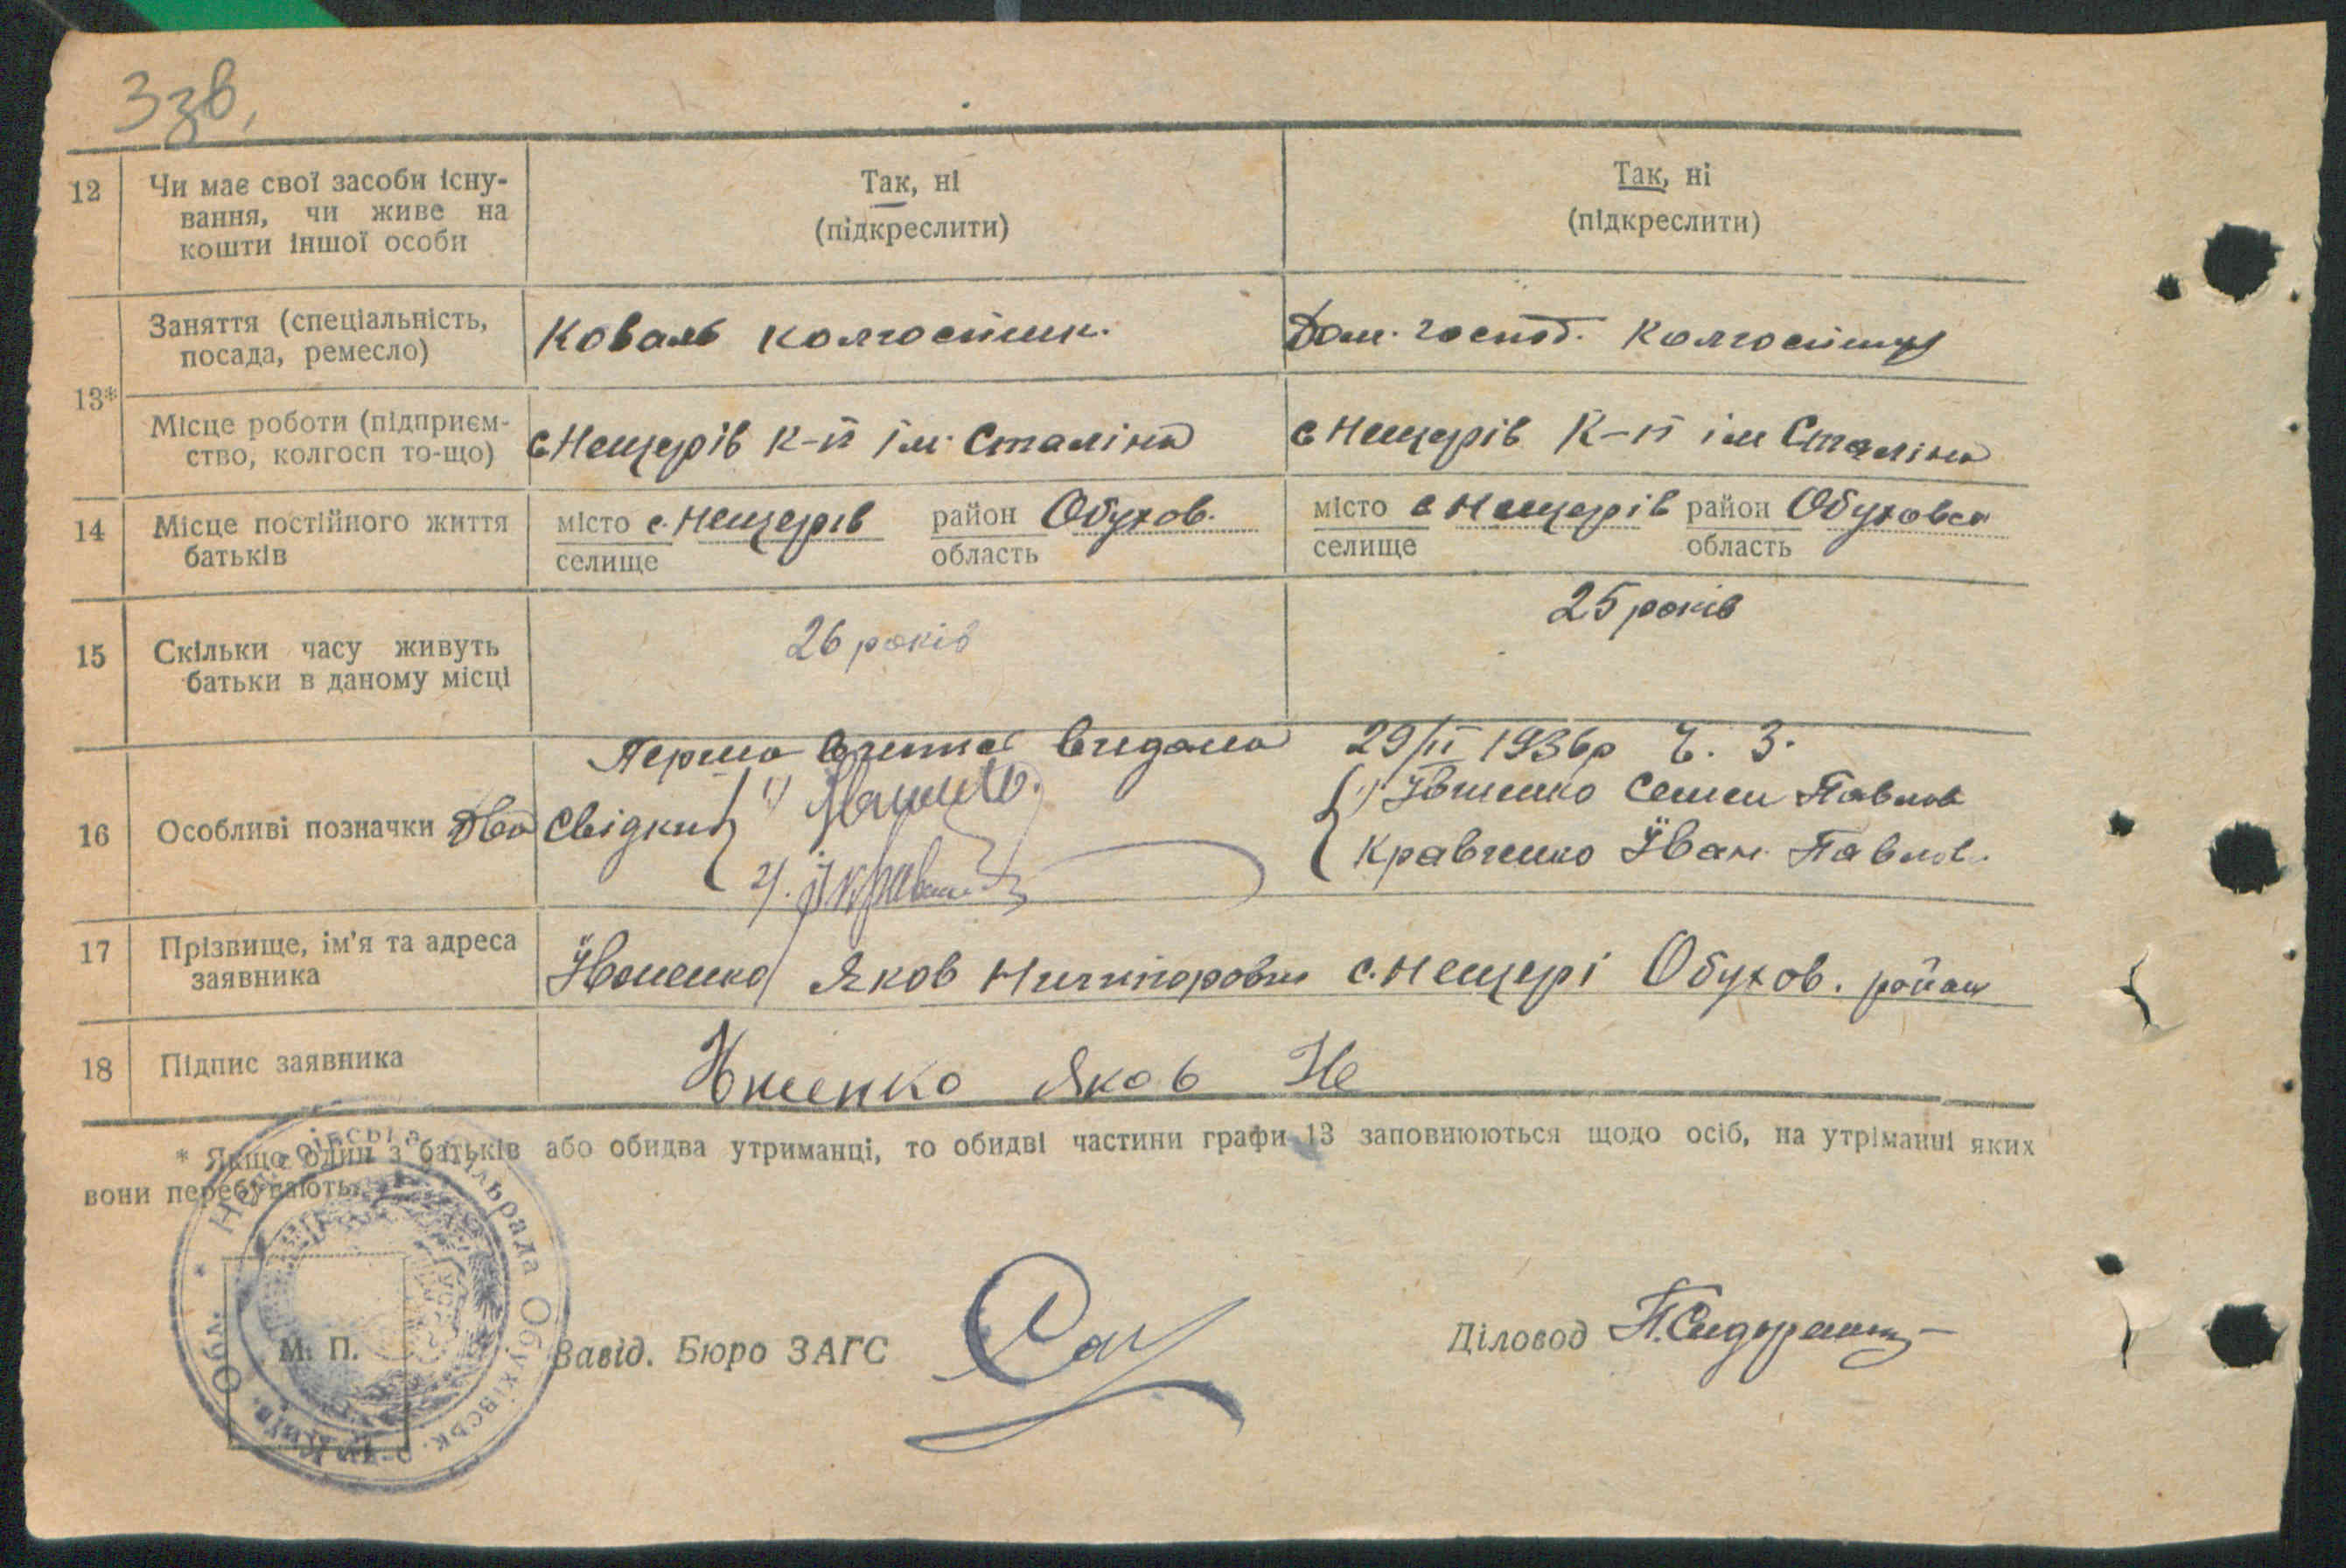 3 зв.
12 Чи має свої засоби існу- Так, ні Так, ні
вання, чи живе на (підкреслити) (підкреслити)
кошти іншої особи
13* Заняття (спеціальність, Коваль колгоспник. Дом. господ.
посада, ремесло)
Місце роботи (підприєм- с Нещерів к-п ім. Сталіна с Нещерів к-п ім Сталіна
ство, колгосп то-що)
14 Місце постійного життя місто с. Нещерів район Обухов. місто с Нещерів район
батьків селище область селище область
15 Скільки часу живуть 26 років 25 років
батьки в даному місці
видана 29/II 1936р Ч. 3.
16 Особливі позначки Два свідки 1) 1) Семен Павлов
2). Кравченко Іван Павлов.
17 Прізвище, ім'я та адреса Яков Ничипорович с. Нещері Обухов. район
заявника
18 Підпис заявника Яков Не
* Якщо один з батьків або обидва утриманці, то обидві частини графи 13 заповнюються щодо осіб, на утріманні яких
вони перебувають.
сільрада Обухівськ. р-ну Київ. Обл.
М. П. Завід. Бюро ЗАГС Діловод